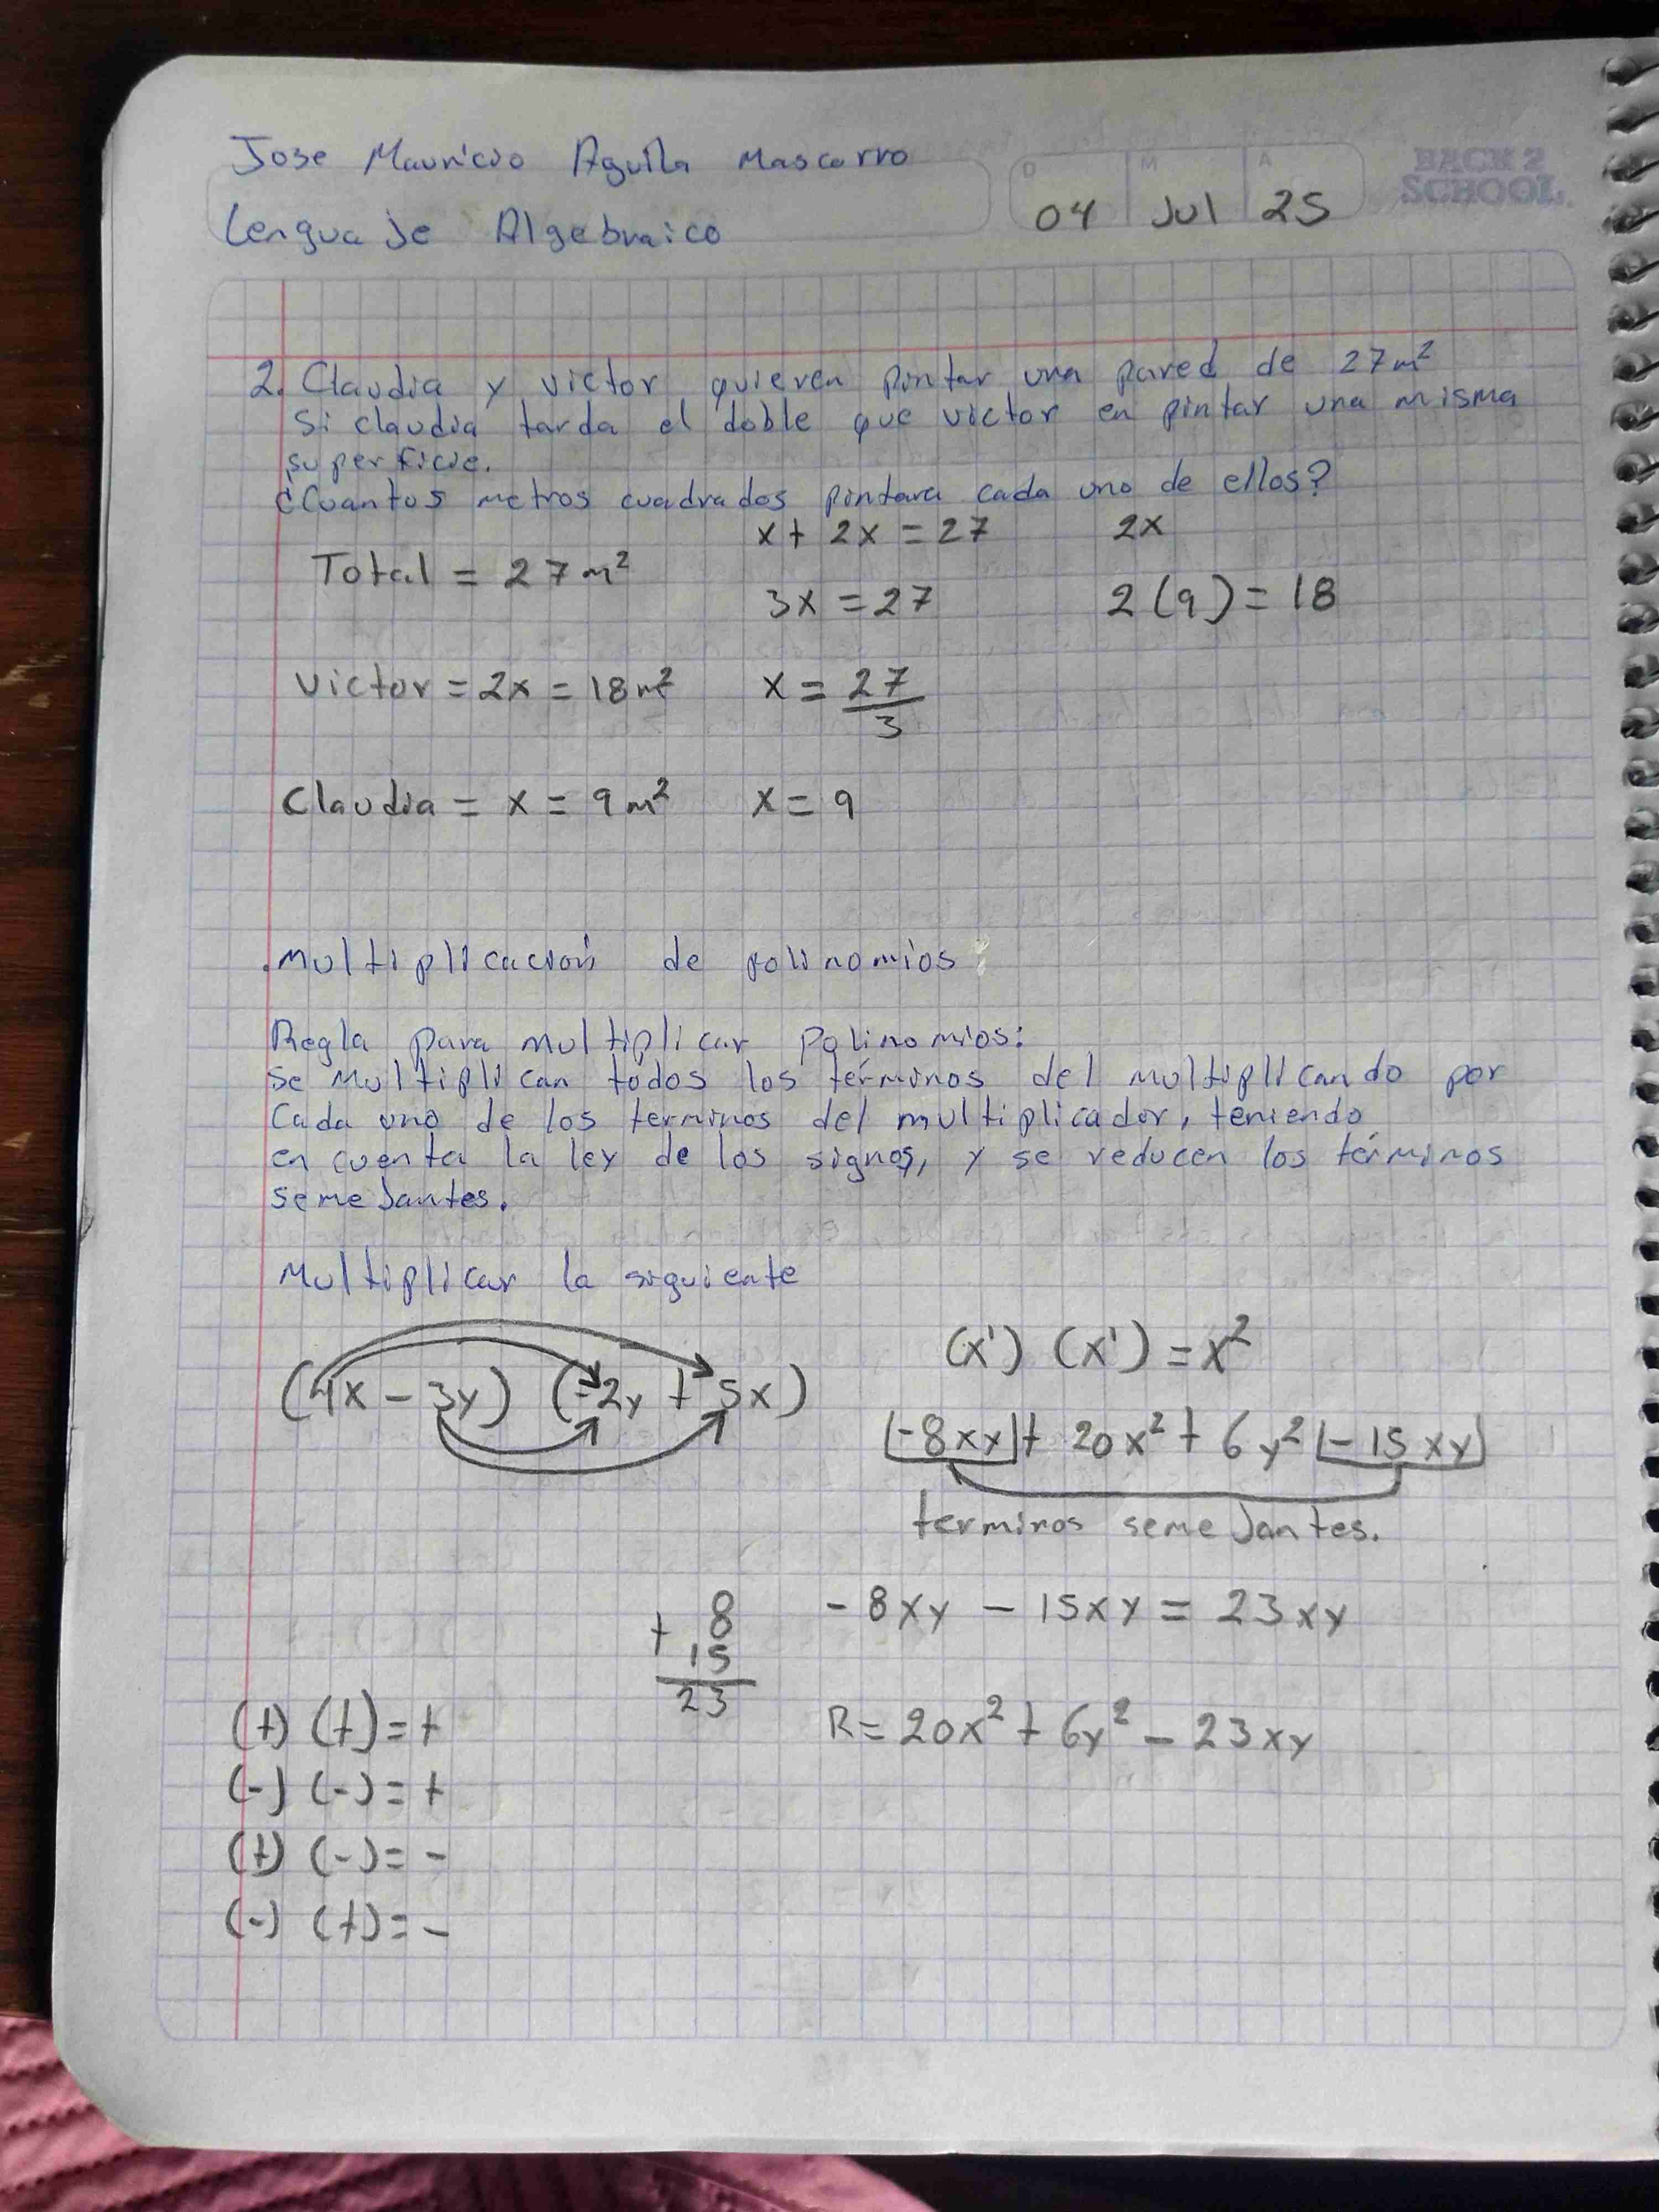 Jose Mauricio Aguila Mascorro
Lenguaje Algebraico
D M A
04 Jul 25
BACK 2
SCHOOL
2. Claudia y victor quieren pintar una pared de 27m²
Si claudia tarda el doble que victor en pintar una misma
superficie.
¿Cuantos metros cuadrados pintara cada uno de ellos?
x + 2x = 27 2x
Total = 27m²
3x = 27 2(9) = 18
Victor = 2x = 18m² x = 27/3
Claudia = x = 9m² x = 9
.Multiplicación de polinomios:
Regla para multiplicar Polinomios:
Se multiplican todos los términos del multiplicando por
Cada uno de los terminos del multiplicador, teniendo
en cuenta la ley de los signos, y se reducen los términos
semejantes.
Multiplicar la siguiente
(x¹) (x¹) = x²
(4x - 3y) (-2y + 5x)
-8xy + 20x² + 6y² -15xy
terminos semejantes.
+ 8
15
23
-8xy - 15xy = 23xy
R = 20x² + 6y² - 23xy
(+) (+) = +
(-) (-) = +
(+) (-) = -
(-) (+) = -